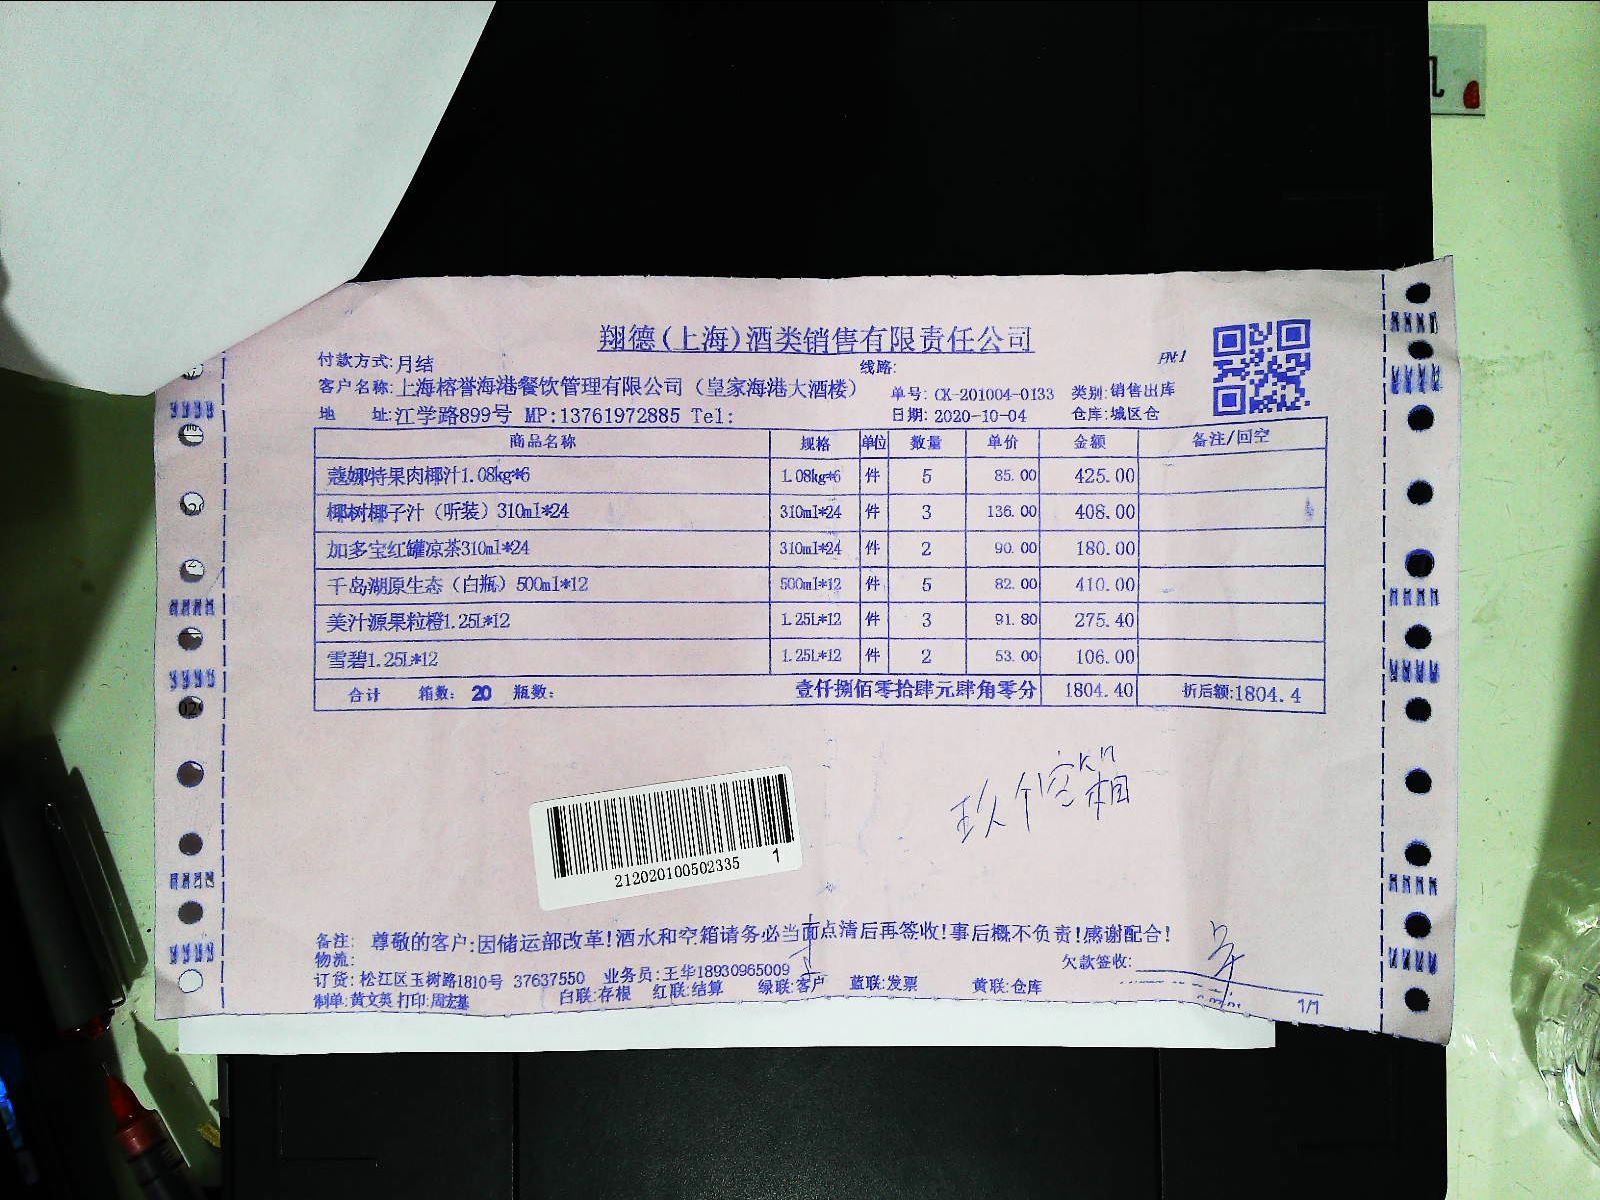 翔德(上海)酒类销售有限责任公司
付款方式:月结 线路:
客户名称:上海榕誉海港餐饮管理有限公司（皇家海港大酒楼） 单号: CK-201004-0133 类别:销售出库
地 址:江学路899号 MP:13761972885 Tel: 日期: 2020-10-04 仓库:城区仓
商品名称 规格 单位 数量 单价 金额 备注/回空
蔻娜特果肉椰汁1.08kg*6 1.08kg*6 件 5 85.00 425.00
椰树椰子汁（听装）310ml*24 310ml*24 件 3 136.00 408.00
加多宝红罐凉茶310ml*24 310ml*24 件 2 90.00 180.00
千岛湖原生态（白瓶）500ml*12 500ml*12 件 5 82.00 410.00
美汁源果粒橙1.25L*12 1.25L*12 件 3 91.80 275.40
雪碧1.25L*12 1.25L*12 件 2 53.00 106.00
合计 箱数: 20 瓶数: 壹仟捌佰零拾肆元肆角零分 1804.40 折后额:1804.4
玖个空箱
212020100502335 1
备注: 尊敬的客户:因储运部改革!酒水和空箱请务必当面点清后再签收!事后概不负责!感谢配合!
物流: 欠款签收:
订货: 松江区玉树路1810号 37637550 业务员:王华18930965009
制单:黄文英 打印:周宏基 白联:存根 红联:结算 绿联:客户 蓝联:发票 黄联:仓库 1/1